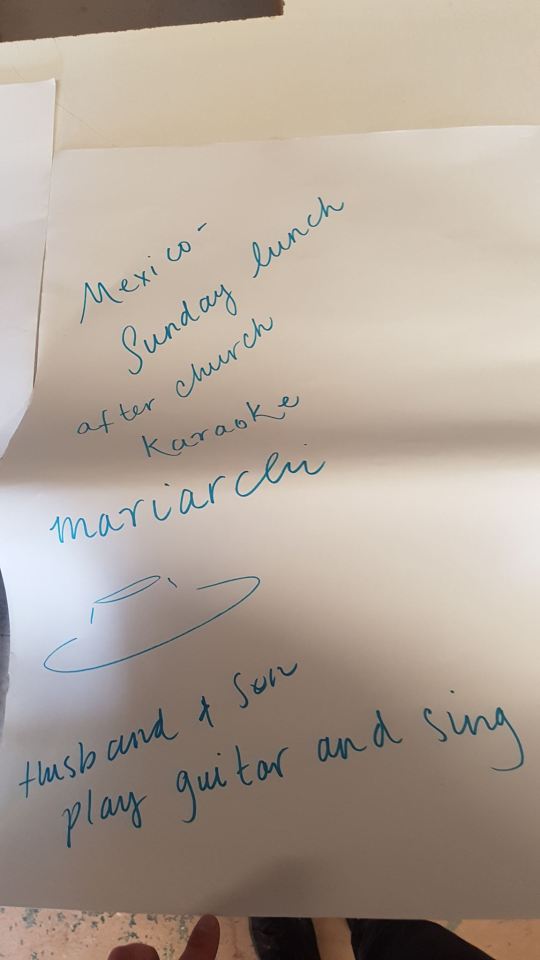 Mexico-
Sunday lunch
after church
karaoke
mariarchi
Husband + Son
play guitar and sing